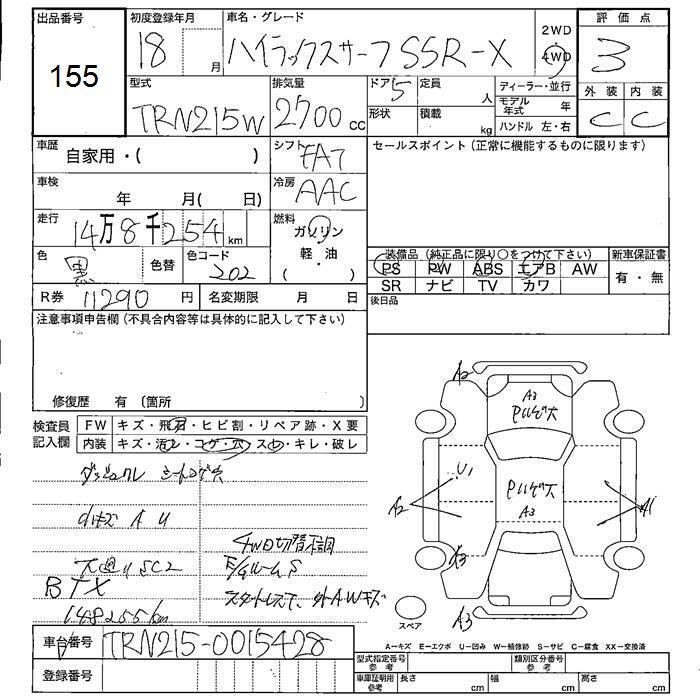 出品番号 初度登録年月 車名・グレード 2WD 4WD 評価点
155 18 月 ハイラックスサーフ SSR-X 3
型式 排気量 ドア 定員 ディーラー・並行 外装 内装
TRN215W 2700 cc 5 人 モデル年式 年 C C
形状 積載 kg ハンドル 左・右
車歴 自家用・( ) シフト FAT セールスポイント(正常に機能するものに限ります)
車検 年 月( 日) 冷房 AAC
走行 14万8千254 km 燃料 ガソリン 軽・油 ( )
色 黒 色替 色コード 202 装備品(純正品に限り○をつけて下さい) 新車保証書
PS PW ABS エアB AW 有・無
SR ナビ TV カワ
R券 11290 円 名変期限 月 日 後日品
注意事項申告欄(不具合内容等は具体的に記入して下さい)
修復歴 有 (箇所 )
検査員記入欄 FW キズ・飛石・ヒビ割・リペア跡・X要
内装 キズ・汚レ・コゲ・穴・スレ・キレ・破レ
ダッシュクレ シートコゲ穴
キズ A U
4WD切替不調
下廻りSC2
BTX
148255km 外AWキズ
A2 A3
U1
A2 A3 A1
A3 A3
A3
スペア
A-キズ E-エクボ U-凹み W-補修跡 S-サビ C-腐食 XX-交換済
車台番号 TRN215-0015428 型式指定番号 参考 類別区分番号 参考
登録番号 車庫証明用 参考 長さ cm 幅 cm 高さ cm